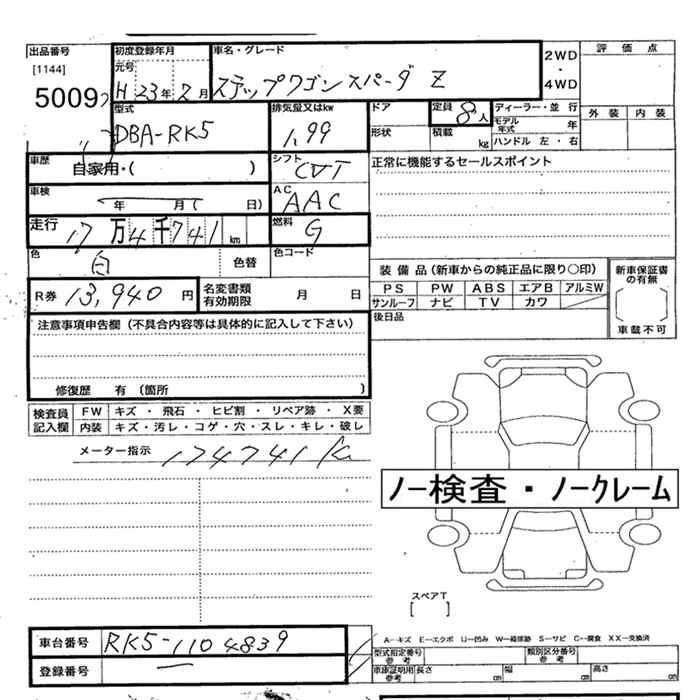 出品番号 [1144] 5009
初度登録年月 元号 H 23年 2月
車名・グレード ステップワゴンスパーダ Z
2WD・4WD
評価点
外装 内装
型式 DBA-RK5
排気量又はkw 1.99
ドア 形状
定員 8人 積載 kg
ディーラー・並行
モデル年式 年
ハンドル 左・右
車歴 自家用・( )
シフト CVT
正常に機能するセールスポイント
車検 年 月 日)
AC AAC
走行 17万4千741km
燃料 G
色 白 色替
色コード
装備品(新車からの純正品に限り○印)
PS PW ABS エアB アルミW
サンルーフ ナビ TV カワ
新車保証書の有無
車載不可
後日品
R券 13,940円
名変書類有効期限 月 日
注意事項申告欄(不具合内容等は具体的に記入して下さい)
修復歴 有(箇所 )
検査員記入欄
FW キズ・飛石・ヒビ割・リペア跡・X要
内装 キズ・汚レ・コゲ・穴・スレ・キレ・破レ
メーター指示 174741k
ノー検査・ノークレーム
スペアT
[ ]
A…キズ E…エクボ U…凹み W…補修跡 S…サビ C…腐食 XX…交換済
車台番号 RK5-1104839
登録番号 ―
型式指定番号 参考
類別区分番号 参考
車庫証明用参考 長さ cm 幅 cm 高さ cm